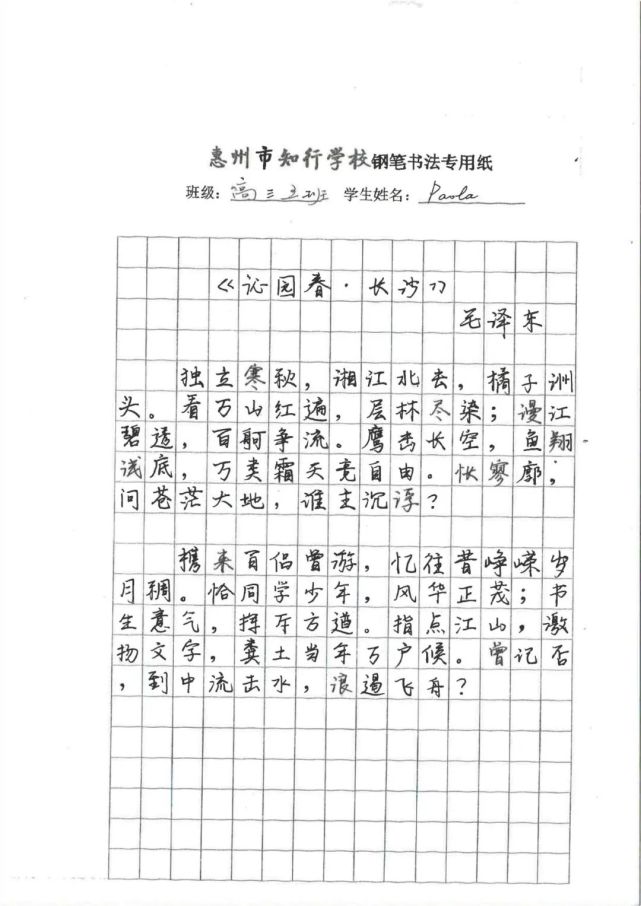 惠州市知行学校钢笔书法专用纸
班级：高三5班 学生姓名：Paola
《沁园春·长沙》
毛泽东
独立寒秋，湘江北去，橘子洲
头。看万山红遍，层林尽染；漫江
碧透，百舸争流。鹰击长空，鱼翔
浅底，万类霜天竞自由。怅寥廓，
问苍茫大地，谁主沉浮？
携来百侣曾游，忆往昔峥嵘岁
月稠。恰同学少年，风华正茂；书
生意气，挥斥方遒。指点江山，激
扬文字，粪土当年万户候。曾记否
，到中流击水，浪遏飞舟？